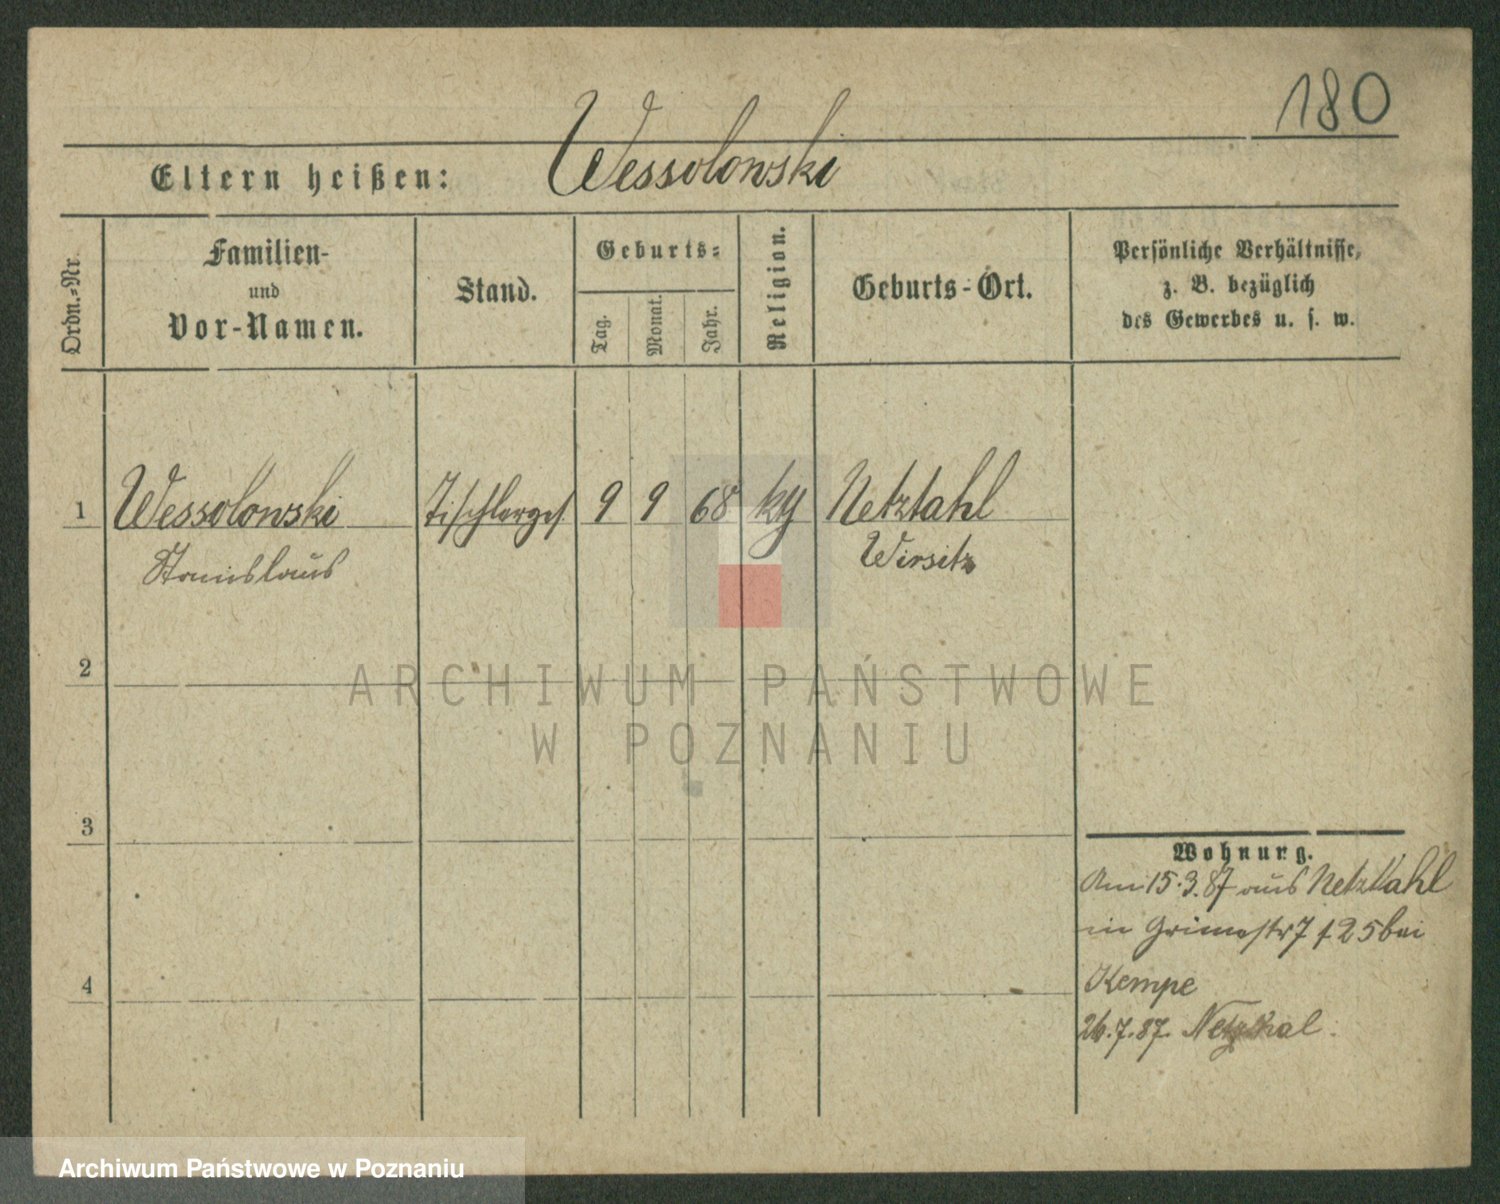 180
Eltern heißen: Wessolowski
Ordn.-Nr.
Familien-
und
Vor-Namen.
Stand.
Geburts-
Tag.
Monat.
Jahr.
Religion.
Geburts-Ort.
Persönliche Verhältnisse,
z. B. bezüglich
des Gewerbes u. s. w.
1 Wessolowski Tischlerges. 9 9 68 kg Netztahl
Stanislaus Wirsitz
2
3
4
Wohnung.
Am 15.3.87 aus Netzthal
in 25 bei
Kempe
26.7.87. Netzthal.
ARCHIWUM PAŃSTWOWE
W POZNANIU
Archiwum Państwowe w Poznaniu